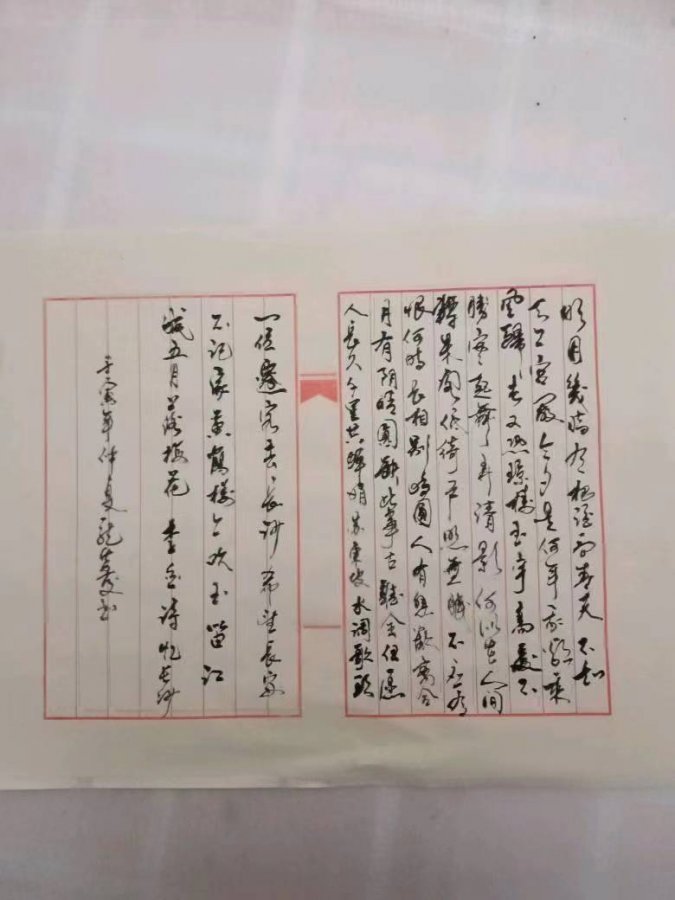 明月幾時有把酒问青天不知
天上宫阙今夕是何年我欲乘
風歸去又恐琼楼玉宇高处不
勝寒起舞弄清影何似在人间
轉朱阁低绮户照無眠不应有
恨何時长相别時圆人有悲歡离合
月有阴晴圆缺此事古難全但愿
人長久千里共婵娟苏东坡水调歌頭
一位遷客去長沙西望長安
不记家黄鶴楼上吹玉笛江
城五月落梅花李白诗忆长沙
壬寅年仲夏龍书